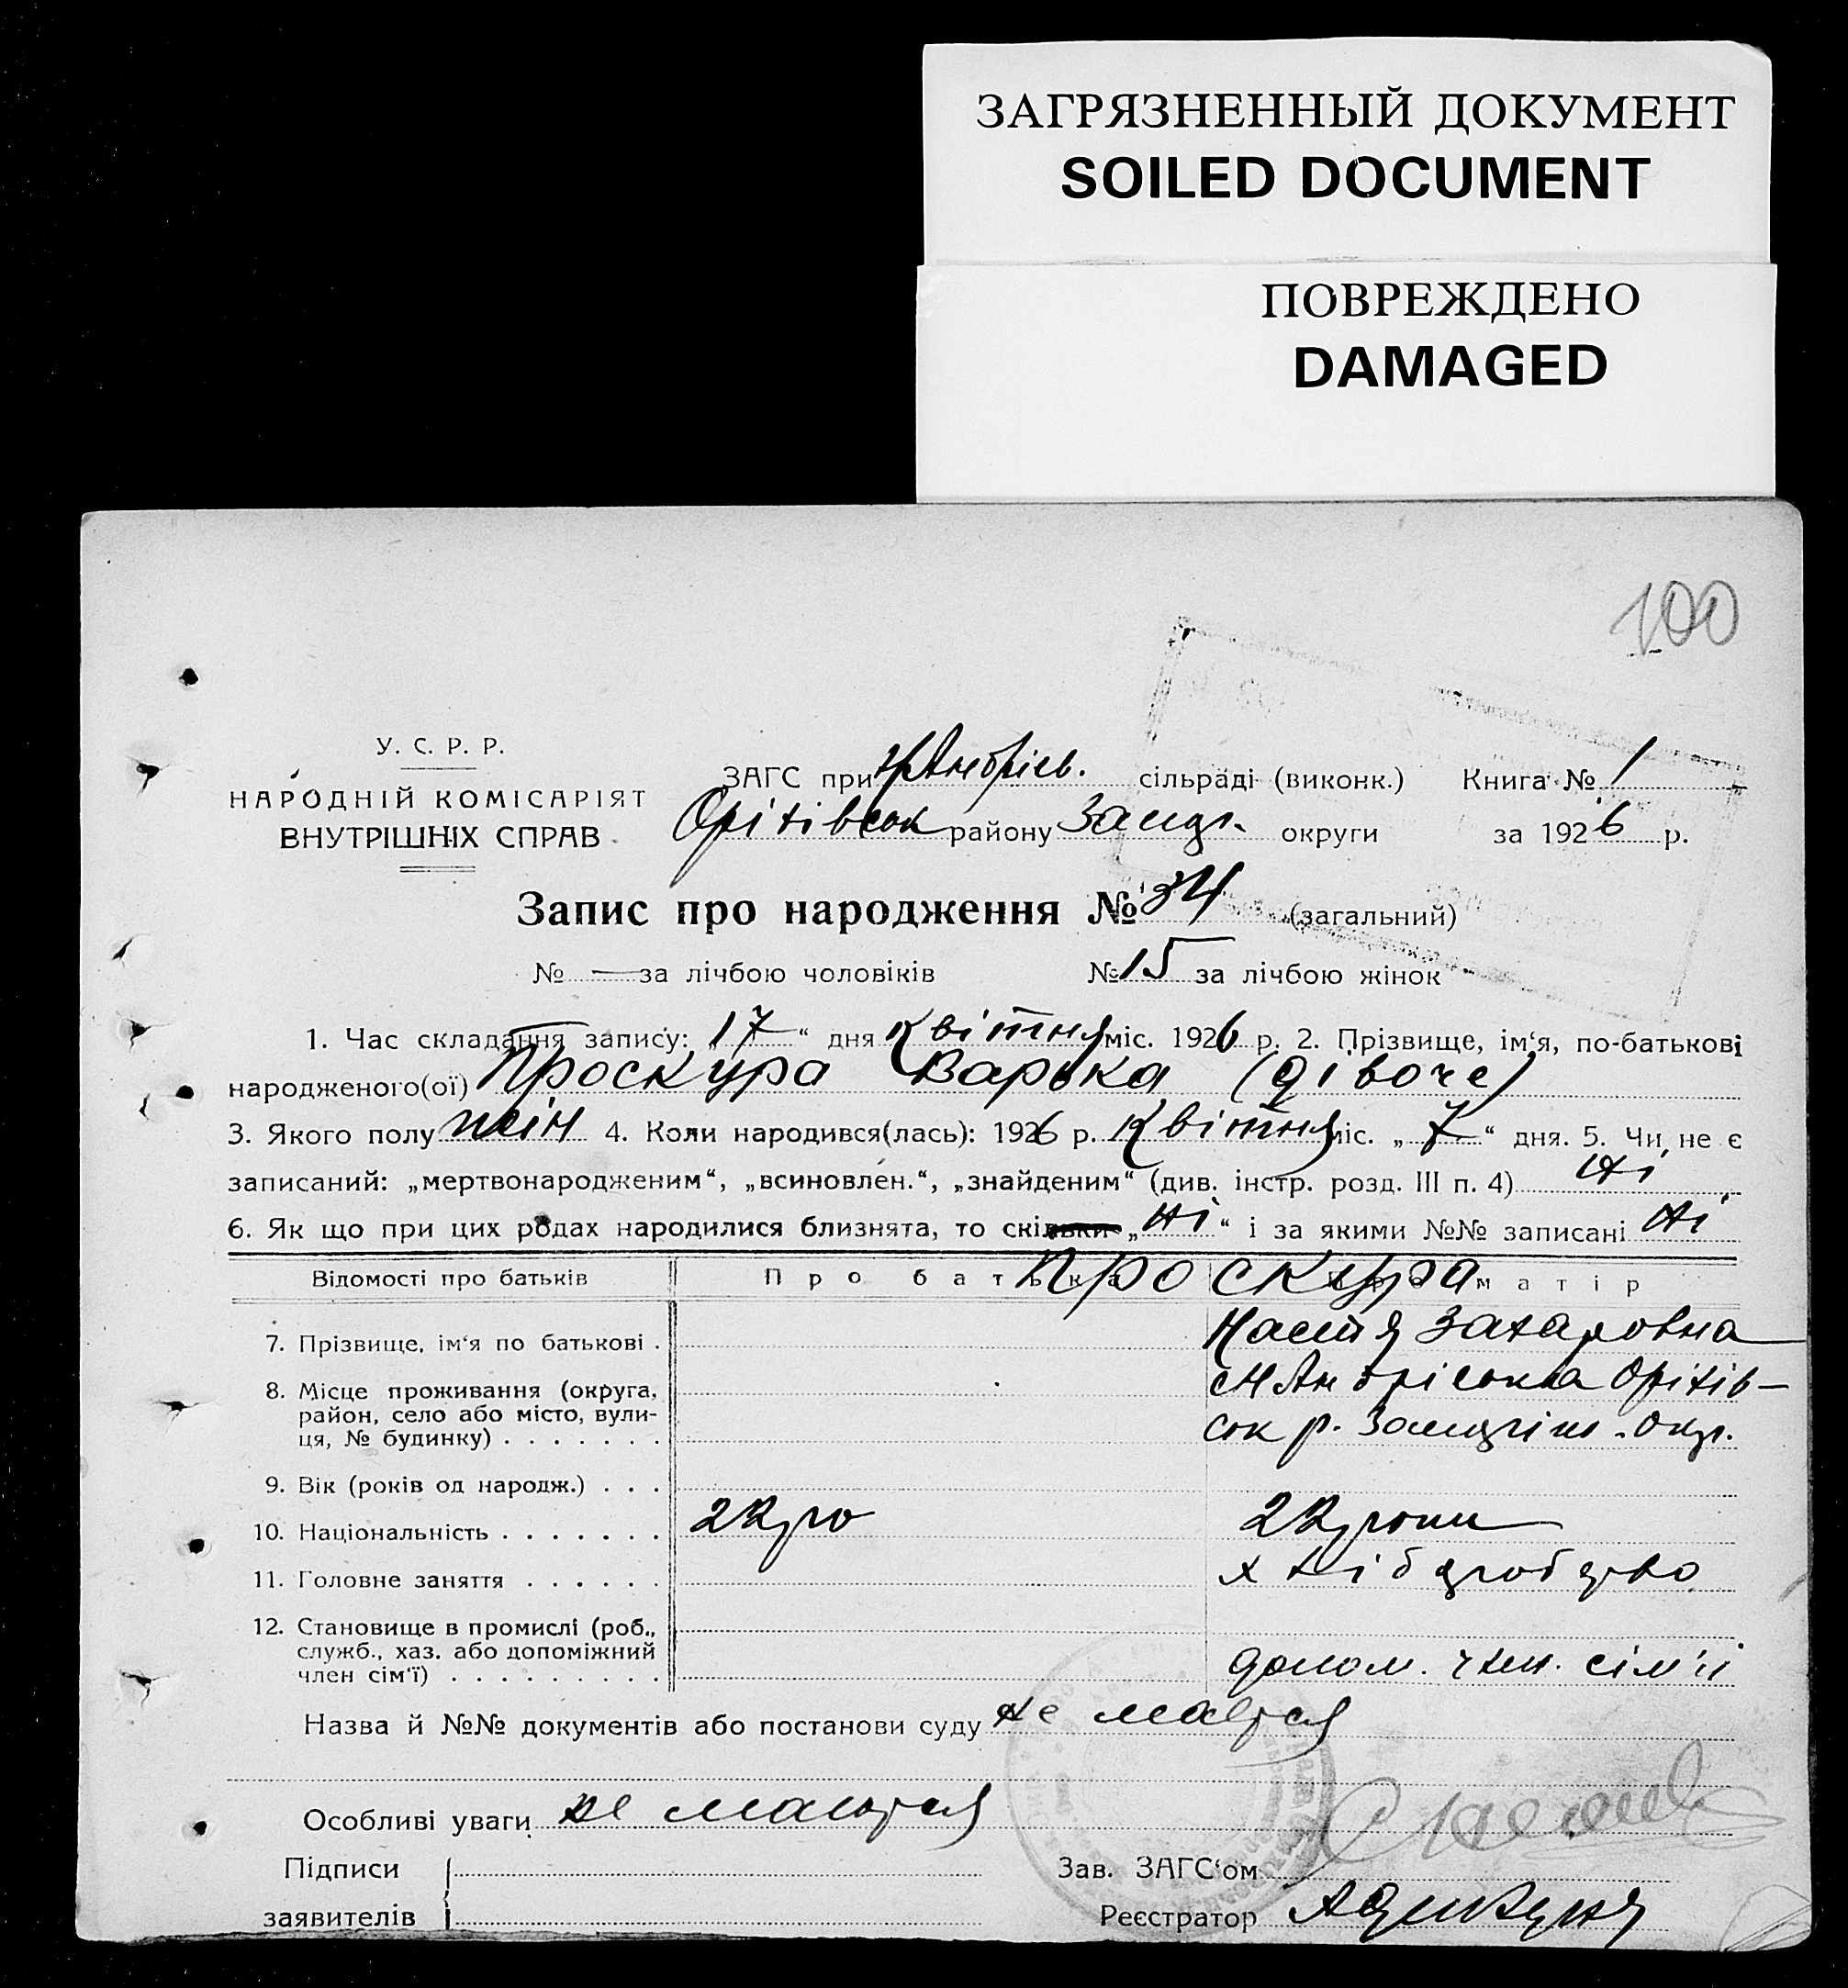 ЗАГРЯЗНЕННЫЙ ДОКУМЕНТ
SOILED DOCUMENT
ПОВРЕЖДЕНО
DAMAGED
100
У. С. Р. Р.
НАРОДНІЙ КОМІСАРІЯТ
ВНУТРІШНІХ СПРАВ
ЗАГС при сільраді (виконк.) Книга № 1
району округи за 1926 р.
Запис про народження № 34 (загальний)
№ — за лічбою чоловіків № 15 за лічбою жінок
1. Час складання запису: „17“ дня квітня міс. 1926 р. 2. Прізвище, ім‘я, по-батькові
народженого(ої) Проскура Варька (дівоче)
3. Якого полу жін 4. Коли народився(лась): 1926 р. квітня міс. „7“ дня. 5. Чи не є
записаний: „мертвонародженим“, „всиновлен.“, „знайденим“ (див. інстр. розд. III п. 4) ні
6. Як що при цих родах народилися близнята, то скільки „ні“ і за якими №№ записані ні
Відомості про батьків Про батька Про матір
Проскура
7. Прізвище, ім‘я по батькові . Настя Захаровна
8. Місце проживання (округа,
район, село або місто, вули-
ця, № будинку) . . . . . . . сок р. окр.
9. Вік (років од народж.) . . .
10. Національність . . . . . . .
11. Головне заняття . . . . . . хліборобство
12. Становище в промислі (роб.,
служб., хаз. або допоміжний
член сім‘ї) . . . . . . . . . допом. член. сім'ї
Назва й №№ документів або постанови суду не мається
Особливі уваги не мається
Підписи
заявителів
Зав. ЗАГС‘ом
Реєстратор